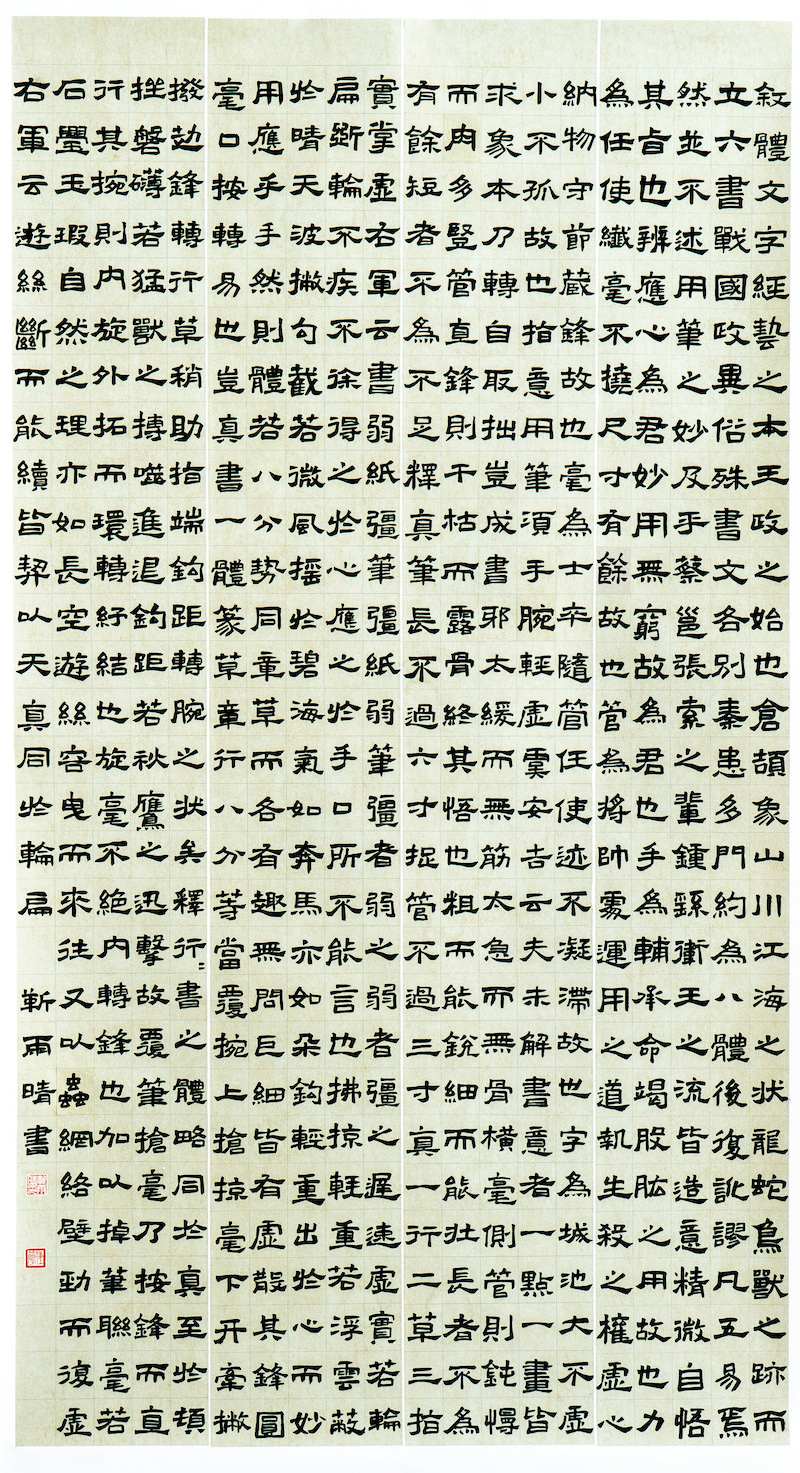 敍體文字經藝之本王政之始也倉頡象山川江海之狀龍蛇鳥獸之跡而
立六書戰國政異俗殊書文各別秦患多門約為八體後復訛謬凡五易焉
然並不述用筆之妙及乎蔡邕張索之輩鍾繇衛王之流皆造意精微自悟
其旨也辨應心為君妙用無窮故為君也手為輔承命竭股肱之用故也力
為任使纖毫不撓尺寸有餘故也管為將帥處運用之道執生殺之權虛心
納物守節藏鋒故也毫為士卒隨管任使迹不凝滯故也字為城池大不虛
小不孤故也指意用筆須手腕輕虛虞安吉云夫未解書意者一點一畫皆
求象本乃轉自取拙豈成書耶太緩而無筋太急而無骨橫毫側管則鈍慢
而肉多豎管直鋒則干枯而露骨終其悟也粗而能銳細而能壯長者不為
有餘短者不為不足釋真筆長不過六寸捉管不過三寸真一行二草三指
實掌虛右軍云書弱紙彊筆彊紙弱筆彊者弱之弱者彊之遲速虛實若輪
扁斵輪不疾不徐得之於心應之於手口所不能言也拂掠輕重若浮雲蔽
於晴天波撇勾截若微風搖於碧海氣如奔馬亦如朵鈎輕重出於心而妙
用應手手然則體若八分勢同章草而各有趣無問巨細皆有虛散其鋒圓
毫口按轉易也豈真書一體篆草章行八分等當覆捥上搶掠毫下開牽撇
撥趯鋒轉行草稍助指端鈎距轉腕之狀矣釋行書之體略同於真至於頓
挫磐礴若猛獸之搏噬進退鈎距若秋鷹之迅擊故覆筆搶毫乃按鋒而直
行其捥則內旋外拓而環轉紓結也旋毫不絕內轉鋒也加以掉筆聯毫若
石璺玉瑕自然之理亦如長空遊絲容曳而來往又以蟲網絡壁勁而復虛
右軍云遊絲斷而能續皆契以天真同於輪扁 靳雨晴書